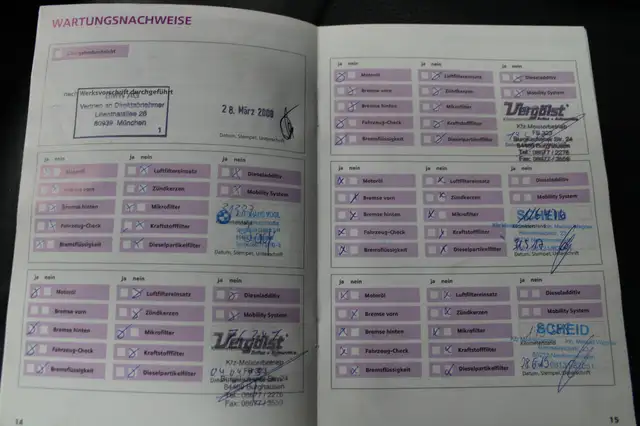 WARTUNGSNACHWEISE
Übergabedurchsicht
Werksvorschrift durchgeführt
BMW AG
Vertrieb an Direktabnehmer
Lilienthalallee 26
80939 München
1
28. März 2008
Datum, Stempel, Unterschrift
ja nein ja nein ja nein
Motoröl Luftfiltereinsatz Dieseladditiv
Bremse vorn Zündkerzen Mobility System
Bremse hinten Mikrofilter
Fahrzeug-Check Kraftstofffilter
Bremsflüssigkeit Dieselpartikelfilter
Datum, Stempel, Unterschrift
ja nein ja nein ja nein
Motoröl Luftfiltereinsatz Dieseladditiv
Bremse vorn Zündkerzen Mobility System
Bremse hinten Mikrofilter
Fahrzeug-Check Kraftstofffilter
Bremsflüssigkeit Dieselpartikelfilter
Vergölst
Reifen + Autoservice
Kfz-Meisterbetrieb
84489 Burghausen
Tel.: 08677 / 2276
Fax: 08677 / 3559
14
ja nein ja nein ja nein
Motoröl Luftfiltereinsatz Dieseladditiv
Bremse vorn Zündkerzen Mobility System
Bremse hinten Mikrofilter
Fahrzeug-Check Kraftstofffilter
Bremsflüssigkeit Dieselpartikelfilter
Vergölst
Reifen + Autoservice
Kfz-Meisterbetrieb
84489 Burghausen
Tel.: 08677 / 2276
Fax: 08677 / 3559
ja nein ja nein ja nein
Motoröl Luftfiltereinsatz Dieseladditiv
Bremse vorn Zündkerzen Mobility System
Bremse hinten Mikrofilter
Fahrzeug-Check Kraftstofffilter
Bremsflüssigkeit Dieselpartikelfilter
SCHEID
Datum, Stempel, Unterschrift
ja nein ja nein ja nein
Motoröl Luftfiltereinsatz Dieseladditiv
Bremse vorn Zündkerzen Mobility System
Bremse hinten Mikrofilter
Fahrzeug-Check Kraftstofffilter
Bremsflüssigkeit Dieselpartikelfilter
SCHEID
Datum, Stempel, Unterschrift
15